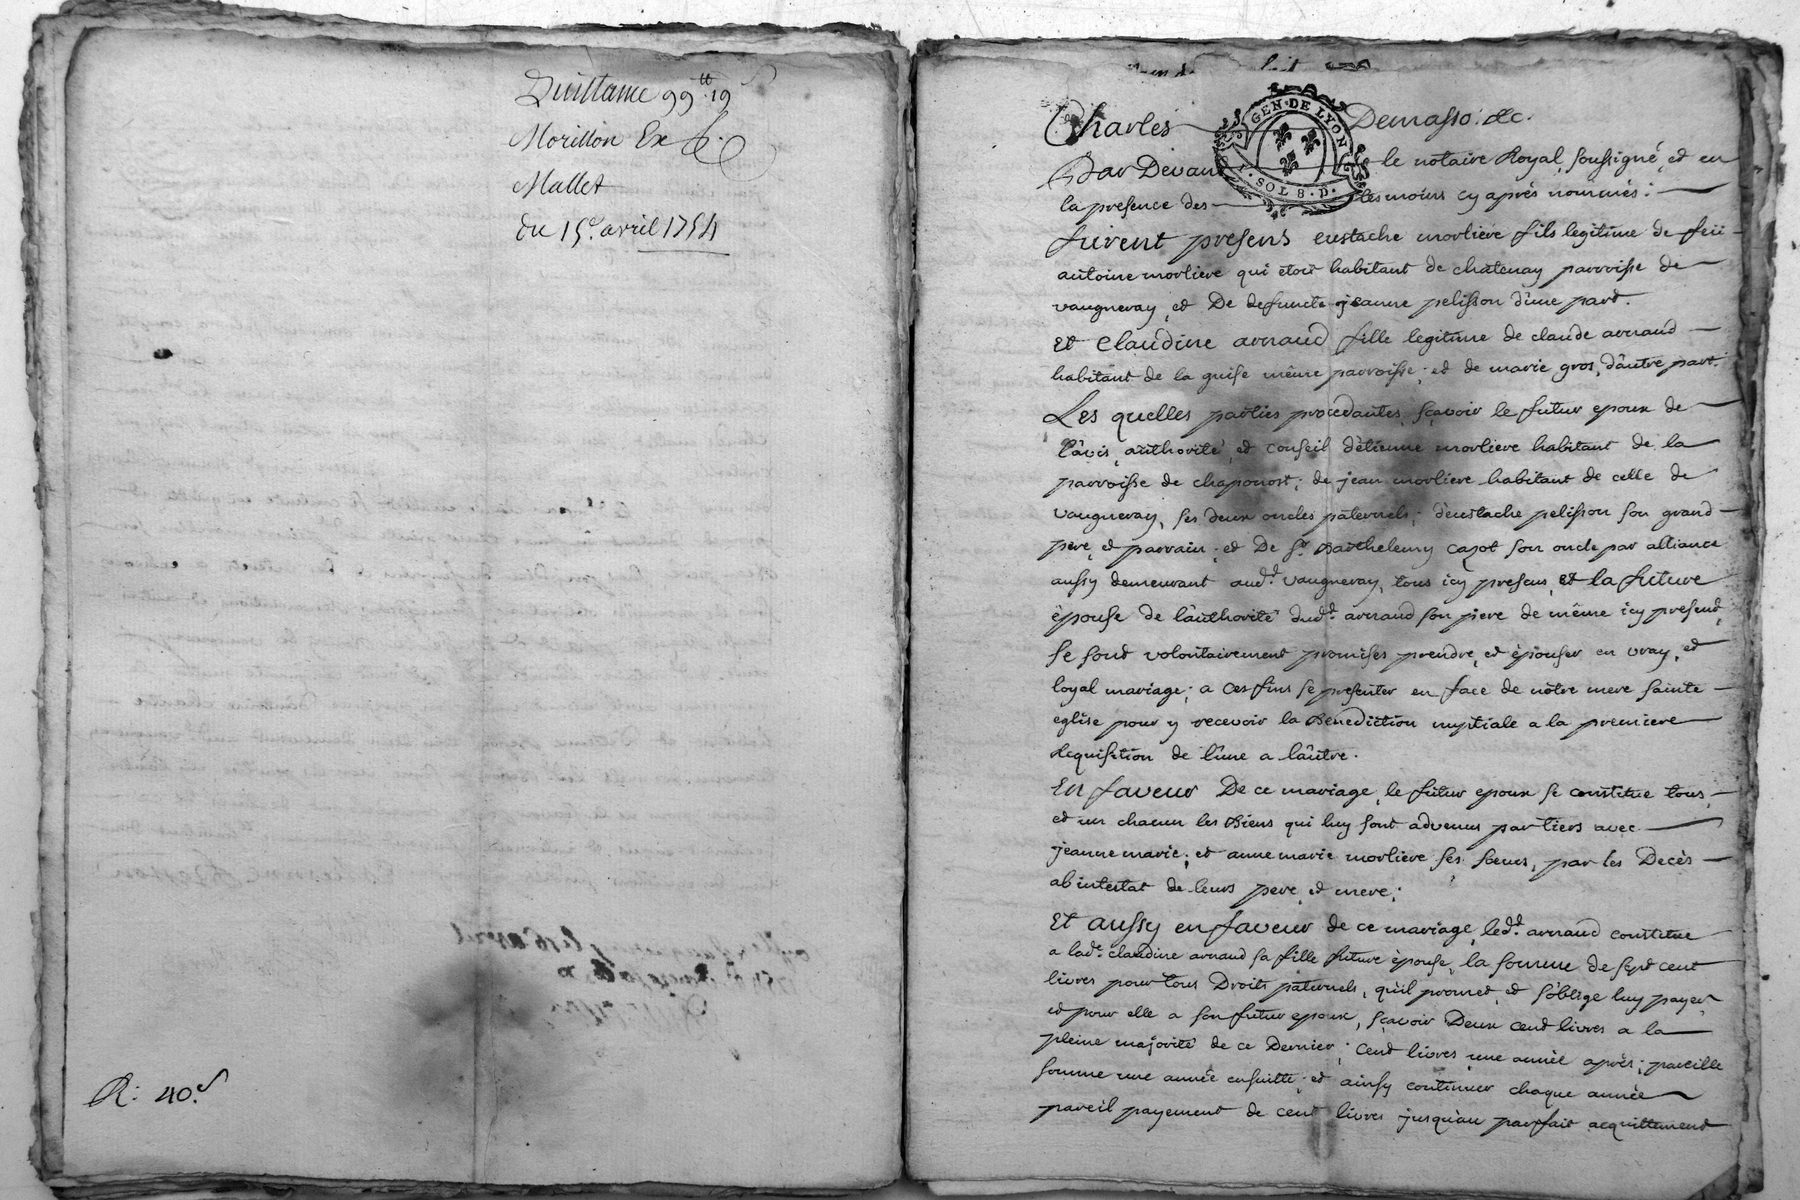 Quittance 99ᵗᵗ 19ˢ
Morillon Ex
Mallet
du 15ᵉ. avril 1754
R: 40.ˢ
Charles Demasso: &c.
GEN · DE LYON
1 · SOL 8 · D.
Par Devant le notaire Royal soussigné, et en
la presence des tesmoins cy après nommés:
furent presens eustache morliere fils legitime de feu
antoine morliere qui etoit habitant de chatenay parroisse de
vaugneray, et De defuncte jeanne pelisson d'une part.
Et Claudine arnaud fille legitime de claude arnaud
habitant de la guise même parroisse; et de marie gros, d'autre part.
Les quelles parties procedantes, sçavoir le futur epoux de
l'avis, authorité, et conseil d'etienne morliere habitant de la
parroisse de chaponost; de jean morliere habitant de celle de
vaugneray, ses deux oncles paternels; d'eustache pelisson son grand
pere, et parrain; et De Sʳ. Barthelemy cazot son oncle par alliance
aussy demeurant audᵗ. vaugneray, tous icy presens, et la future
épouse de l'authorité dudᵗ. arnaud son pere de même icy present,
se sont volontairement promises prendre, et épouser en vray, et
loyal mariage; a ces fins se presenter en face de nôtre mere sainte
eglise pour y recevoir la Benediction nuptiale a la premiere
Requisition de l'une a l'autre.
En faveur De ce mariage, le futur epoux se constitue tous,
et un chacun les Biens qui luy sont advenus par tiers avec
jeanne marie; et anne marie morliere ses soeurs, par les Decès
ab intestat de leurs pere, et mere;
Et aussy en faveur de ce mariage, ledᵗ. arnaud constitue
a ladᵉ. claudine arnaud sa fille future épouse, la somme de sept cent
livres pour tous Droits paternels, qu'il promet, et s'oblige luy payer,
et pour elle a son futur epoux, sçavoir Deux cent livres a la
pleine majorité de ce Dernier; cent livres une année après; pareille
somme une année ensuitte; et ainsy continuer chaque année
pareil payement de cent livres jusqu'au parfait acquittement